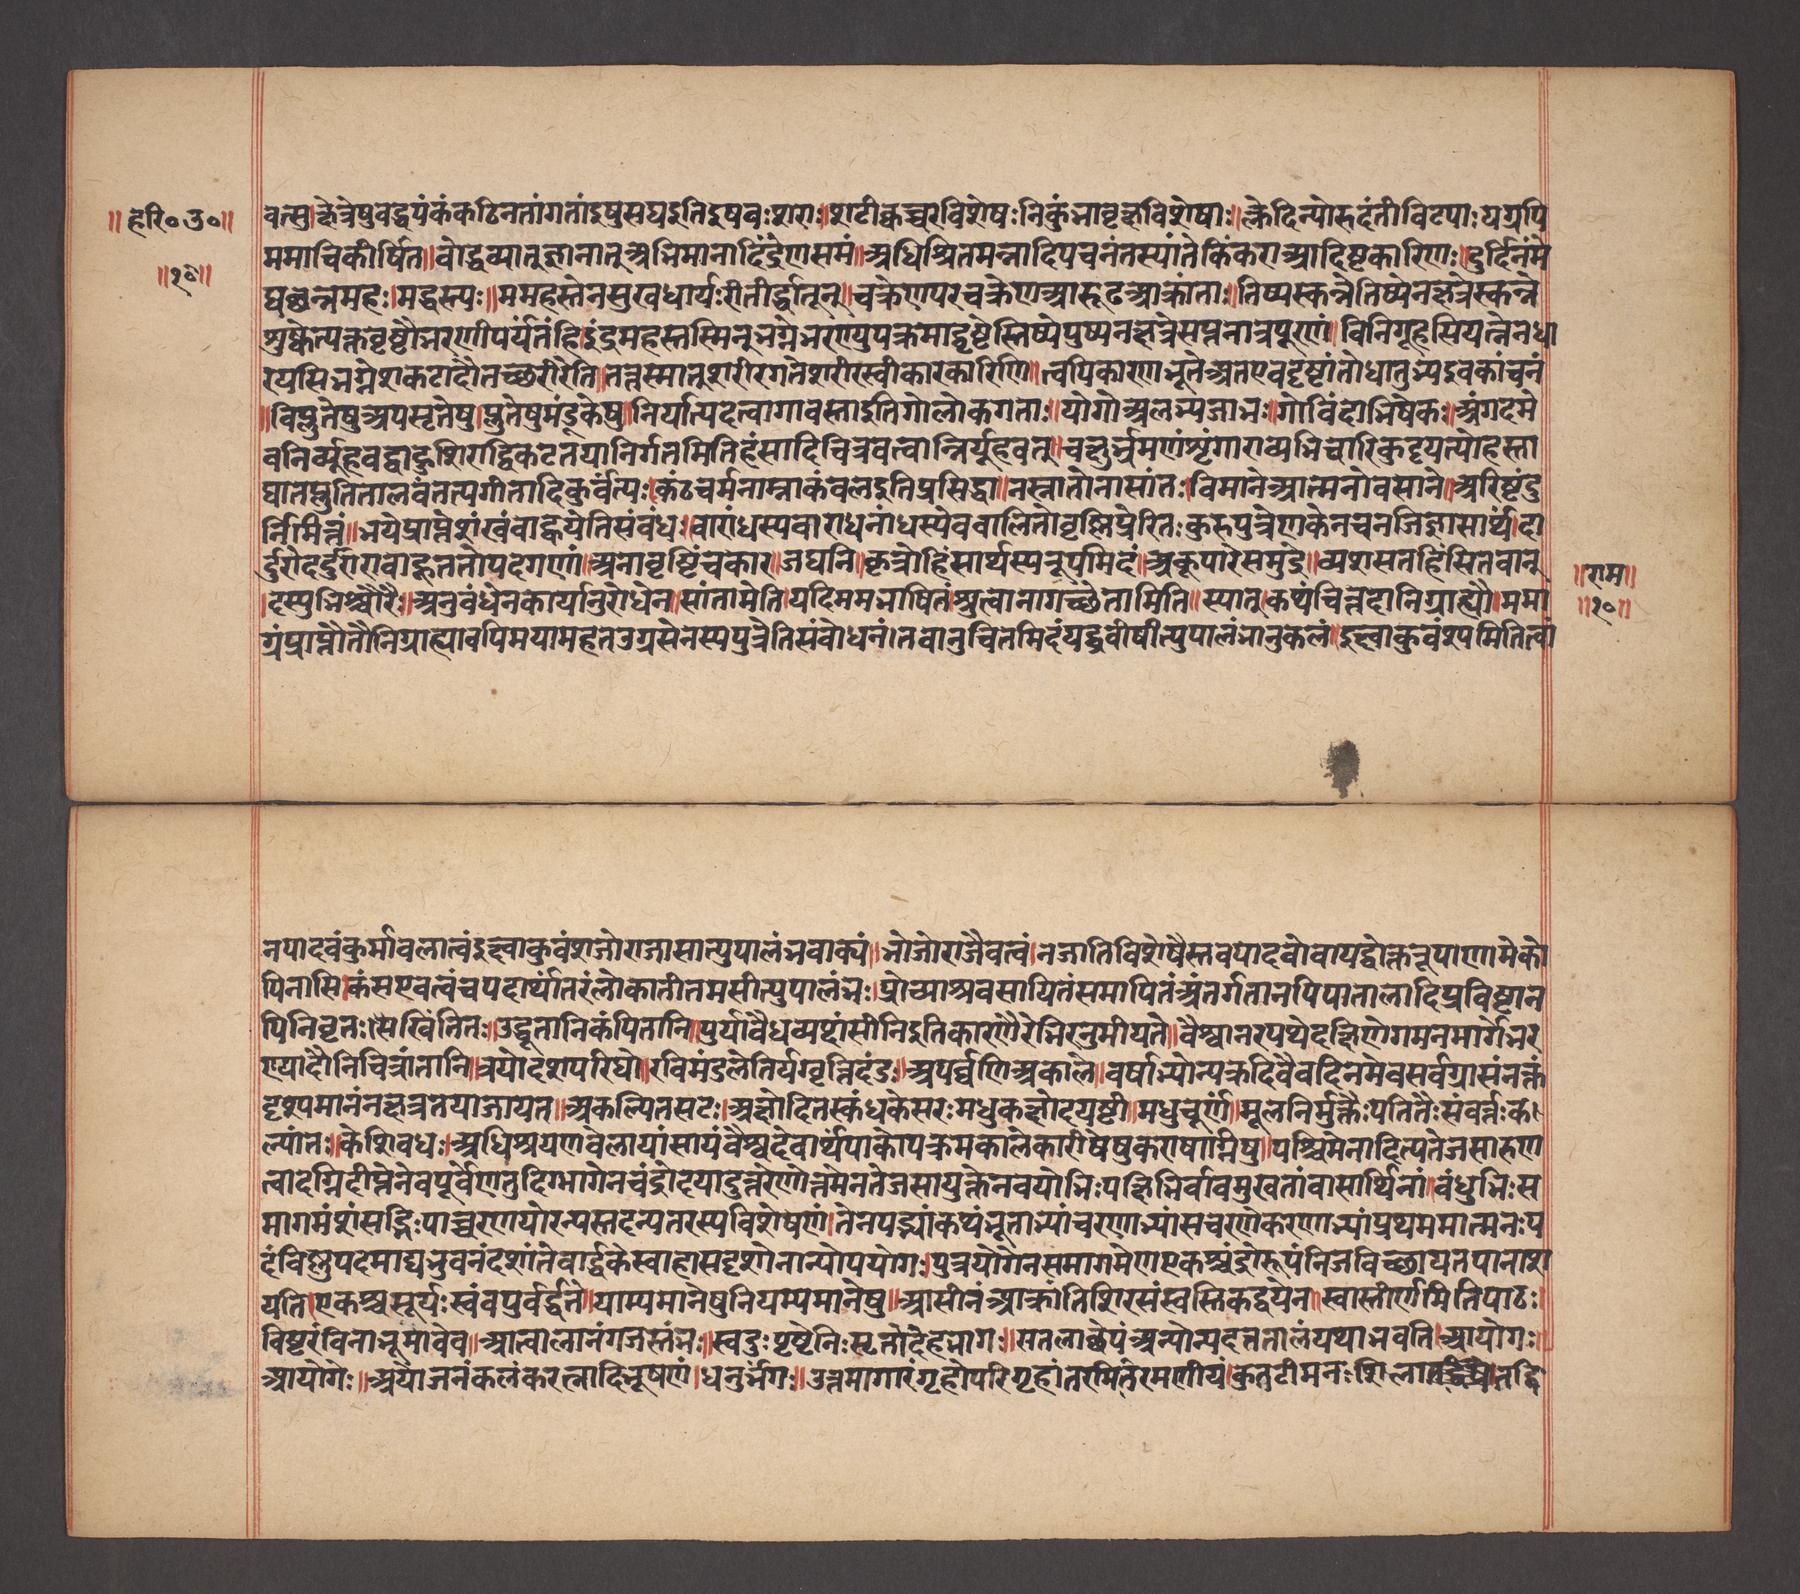 ॥हरि॰उ॰॥
॥१०॥
वत्सु क्षेत्रेषुवद्वयंकंकठिनतांगतांइषुसघइतिइषवःशराः।शटीकच्चरविशेषःनिकुंभावृक्षविशेषाः॥क्लेदिन्योरुदंतीविटपाःयद्यपि
ममाचिकीर्षित॥वोद्धव्यातुज्ञानातुअभिमानादिंद्रेणसमं॥अधिश्रितमन्नादिपचनंतस्यांतेकिंकराआदिष्टकारिणः॥दुर्दिनंमे
घछन्नमहः।मद्वस्त्यः॥ममहस्तेनसुखधार्यःरीतीर्द्धातून्॥चक्रेणपरचक्रेणआरूढआक्रांताः॥तिष्यस्कन्नेतिष्येनक्षत्रेस्कन्ने
शुष्केत्यक्तवृष्टौभरणीपर्यंतंहि।इंद्रमहस्तस्मिनुभग्नेभरण्युपक्रमाद्दृष्टेस्तिष्येपुष्यनक्षत्रेसप्तनात्रपुराणं॥विनिगूहसियत्नेनधा
रयसिभग्नेशकटादौतच्छरीरेति॥तत्तस्मातुशरीरगतेशरीरस्वीकारकारिणि॥त्वयिकारणभूतेअतएवदृष्टांतोधातुभ्यइवकांचनं
॥विप्लुतेषुअपसृतेषु॥प्लुतेषुमंडूकेषु॥निर्यात्यदत्वागावस्ताइतिगोलोकगताः॥योगोअलभ्यलाभः॥गोविंदाभिषेकः॥अंगदमे
वनिर्व्यूहवद्वाहुशिराद्विकटतयानिर्गतमितिहंसादिचित्रवत्वान्निर्यूहवत्॥चक्षुर्भ्रमणंशृंगाराव्यभिचारिकुदृयत्योहस्ता
घातप्लुतितालवंतत्यगीतादिकुर्वंत्यः॥कंठचर्मनाम्नाकंवलइतिप्रसिद्धा॥नस्नातोनासांतः।विमानेआत्मनोवसाने॥अरिष्टंदु
र्निमित्तं॥भयेप्राप्तेशंखंवाद्ध्येतिसंबंधः॥वारांधस्यवाराधनांधस्येववालितोवृष्णिप्रेरितः।कुरुपुत्रेणकेनचनजिज्ञासार्थं॥दा
र्दुरोदर्दुरारावाहूततोपदगणं॥अनावृष्टिंचकार॥जघनि॥कृत्रोहिंसार्थस्यनूपमिदं॥अकूपारेसमुद्रे॥व्यशसतहिंसितवान्
॥दस्युभिश्चौरैः॥अनुबंधेनकार्यानुरोधेन॥सांतामेति॥यदिममभाषितंश्रुत्वानागच्छेतामिति॥स्यातु॥कथंचिन्नेहानिग्राह्यौ॥ममा
ग्रंप्राप्तौतौनिग्राह्यावपिमयामहतउग्रसेनस्यपुत्रेतिसंबोधनं।तवानुचितमिदंयद्ब्रवीषीत्युपालंभानुकूलं॥इक्ष्वाकुवंश्यमितित्वां
॥राम॥
॥१०॥
नपादवंकुर्मोवलात्वंइक्ष्वाकुवंशजोराजासात्युपालंभवाक्यं॥भोजोराजैवत्वं।नजातिविशेषैस्तवपादवोवायद्वोक्तनूपाणामेको
पिनासि।कंसएवत्वंचपदार्थांतरंलोकातीतमसीत्युपालंभः॥प्रोच्याअवसायितंसमापितंअंतर्गतानपिपातालादिप्रविष्टान
पिनिवृतः॥सेखिंतितः।उद्भूतानिकंपितानि॥पुर्यावैधव्यशंसीनिइतिकारणैरेभिरनुमीयते॥वैश्वानरपथेदक्षिणेगमनमार्गेभर
ण्यादौनिचित्रांतानि॥त्रयोदशपरिघो॥रविमंडलेतिर्यग्वृत्तिदंडः॥अपर्वणिअकाले॥वर्षाभ्योन्यक्रदिवैवदिनमेवसर्वग्रासंनक्तं
दृश्यमानंनक्षत्रतयाजायत॥अकल्पितसटः॥अक्षोदितस्कंधकेसरःमधुकक्षोदयष्टी॥मधुचूर्णं॥मूलनिर्मुक्तैःपतितैःसंवर्त्तःक
ल्पांतः॥केशिवधः॥अधिश्रयणवेलायांसायंवैश्वदेवार्थंपाकोपक्रमकालेकारीषेषुकराषाग्निषु॥पश्चिमेनादित्यतेजसारुण
त्वादग्निदीप्तेनेवपूर्वेणतुदिग्भागेनचंद्रोदयादुत्तरेणोत्तमेनतेजसायुक्तेनवयोभिःपक्षिभिर्वावमुखतांवासार्थिनां॥बंधुभिःस
मागमंशंसद्भिःपाच्चरणयोरन्यस्तदन्यतरस्यविशेषणं।तेनपद्भ्यांकथंभूताभ्यांचरणाभ्यांसचरणेकरणाभ्यांप्रथममात्मनःप
दंविष्णुपदमाद्यभुवनंदशांतेवार्द्धकेस्वाहासदृशेनान्योपयोगः॥पुत्रयोगेनसमागमेणएकश्चंद्रोरूपंनिजविच्छायतपानाश
यति॥एकश्चसूर्यःस्वंवपुर्वर्द्धते॥याम्यमानेषुनियम्यमानेषु॥आसीनंआक्रांतिशिरसंस्वस्तिकद्वयेन॥स्वास्तीर्णमितिपाठः॥
विष्टरंविनाभूमावेव॥आत्वालानंगजस्तंभः॥स्वदुःपृष्टेनिःसृतोदेहभोगः॥सतलाक्षेपंअन्योन्यदत्ततालंयथाभवति।आयोगः॥
आयोगेः॥अयोजनंकलंकरत्नादिभूषणं॥धनुर्भंगः॥उत्तमागारंगृहोपरिगृहांतरमितेरमणीयं।कुतटीमनःशिलातद्वि